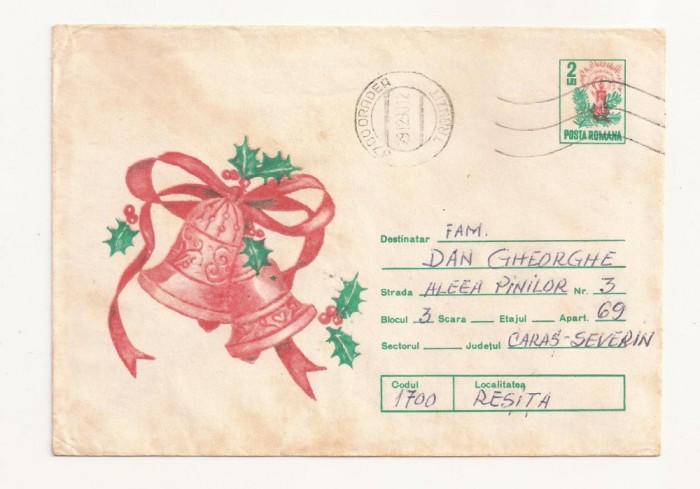 2
LEI
POSTA ROMANA
3700 ORADEA
TRANZIT
Destinatar FAM.
DAN GHEORGHE
Strada ALEEA PINILOR Nr. 3
Blocul 3 Scara Etajul Apart. 69
Sectorul Județul CARAȘ-SEVERIN
Codul Localitatea
1700 REȘIȚA